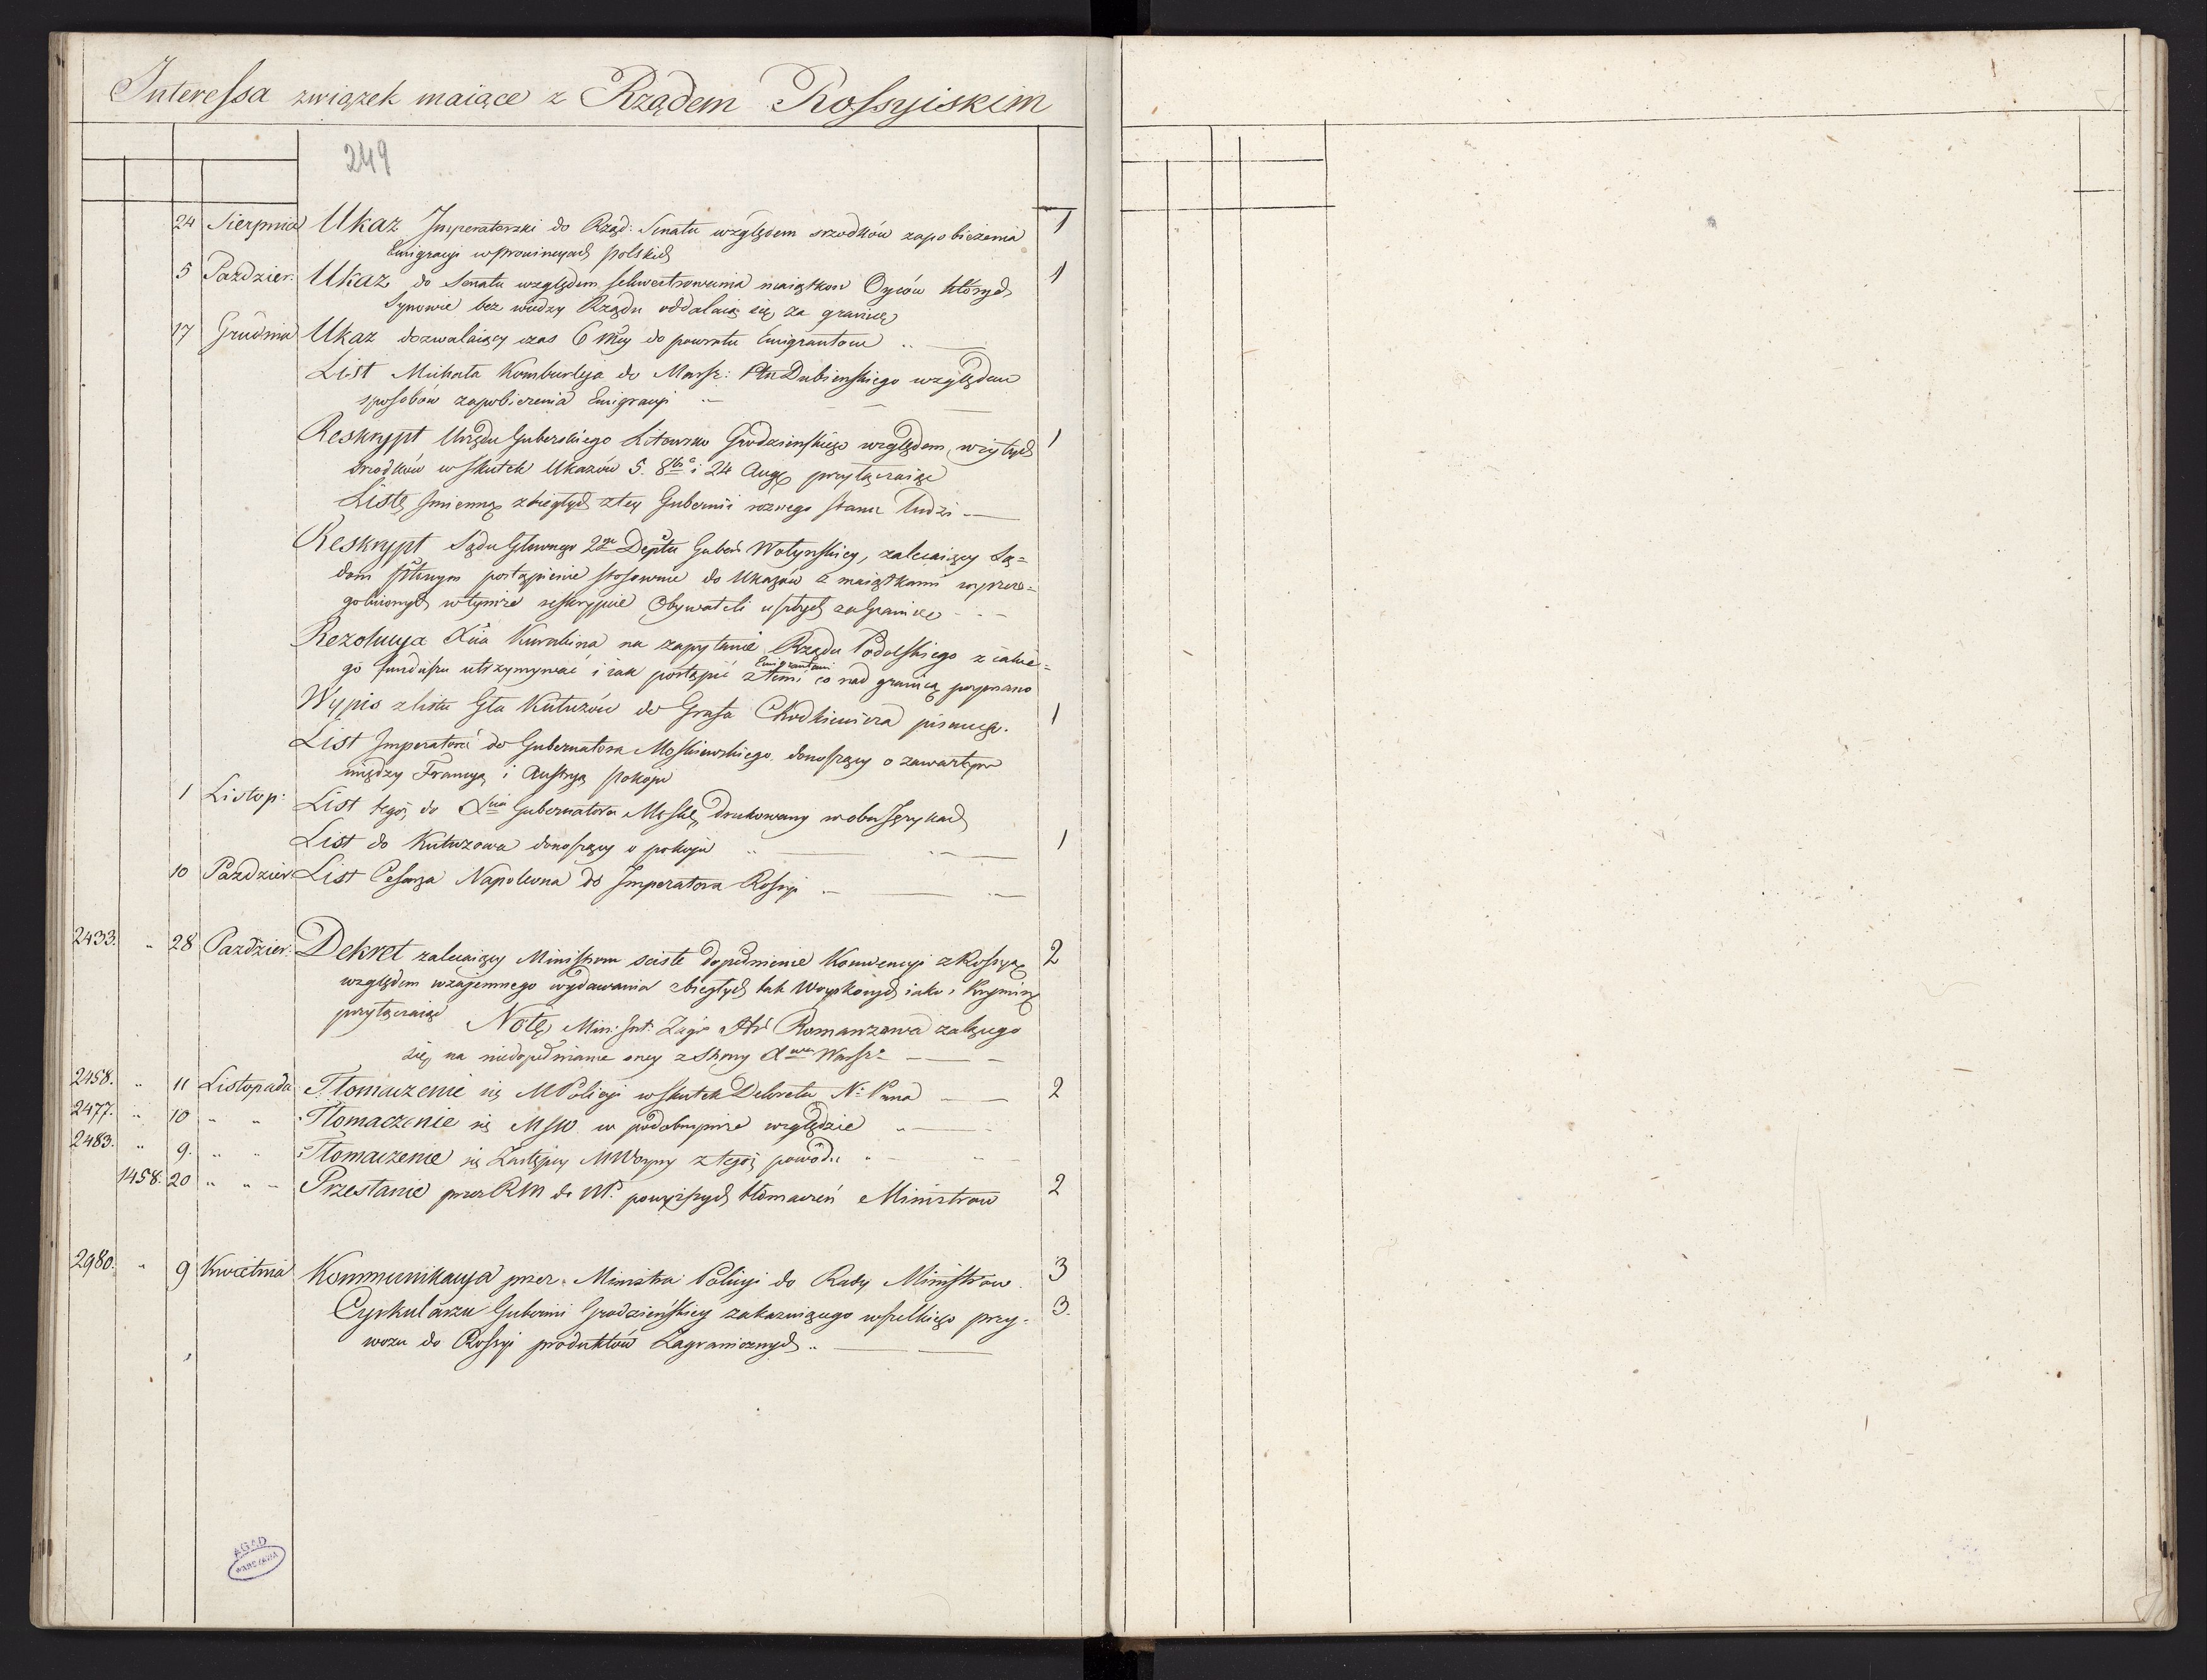 Interessa związek maiące z Rządem Rossyiskim
249
24 Sierpnia Ukaz Imperatorski do Rząd: Senatu względem srzodków zapobieżenia 1
Emigracyi w prowincyach polskich
5 Pazdzier: Ukaz do Senatu względem sekwestrowania maiątkow Oyców których 1
Synowie bez wiedzy Rządu oddalaią się za granicę
17 Grudnia Ukaz dozwalaiący czas 6 Mcy do powrotu Emigrantow
List Michała Komburleja do Marsz: Ptu Dubienskiego względem
sposobów zapobieżenia Emigracyi
Reskrypt Urzędu Guberskiego Litewsko Grodzienskiego względem wziętych 1
srzodków w skutek Ukazów 5. 8bra i 24 Aug przyłączaiąc
Listę Imienną zbiegłych z tey Gubernii roznego stanu ludzi
Reskrypt Sądu Głownego 2go Deptu Guber Wołynskiey, zalecaiący Są=
dom postąpienie stosownie do Ukazów z maiątkami wyszcze=
gólnionych w tymże reskrypcie Obywateli uszłych za Granicę
Rezolucya Xcia Kurakina na zapytanie Rządu Podolskiego z iakie=
go funduszu utrzymywać i iak postąpić z temi Emigrantami co nad granicą poymano
Wypis z listu Gła Kutuzów do Grafa Chodkiewicza pisanego. 1
List Imperatora do Gubernatora Moskiewskiego donoszący o zawartym
między Francyą i Austryą pokoju
1 Listop: List tegoż do Xcia Gubernatora Mosk drukowany w obu Językach
List do Kutuzowa donoszący o pokoju 1
10 Pazdzier List Cesarza Napoleona do Imperatora Rossyi
2433. " 28 Pazdzier: Dekret zalecaiący Ministrom sciste dopełnienie Konwencyi z Rossyą 2
względem wzajemnego wydawania zbiegłych tak Woyskowych iako i Krymin
przyłączaiąc Notę Min: Int: Zagr Romanzowa żalącego
się na niedopełnianie oney z strony Xtwa Warszo
2458. " 11 Listopada Tłomaczenie się MPolicyi w skutek Dekretu N: Pana 2
2477. " 10 " " Tłomaczenie się MSW w podobnymże względzie
2483. " 9. " " Tłomaczenie się Zastępcy MWoyny z tegoż powodu
1458. 20 " " Przesłanie przez RM do NP. powyższych tłomaczeń Ministrow 2
2980. " 9 Kwietnia Kommunikacya przez Ministra Policyi do Rady Ministrow 3
Cyrkularzu Gubernii Grodzieńskiey zakazuiącego wszelkiego przy- 3.
wozu do Rossyi produktów Zagranicznych
AGAD
WARSZAWA